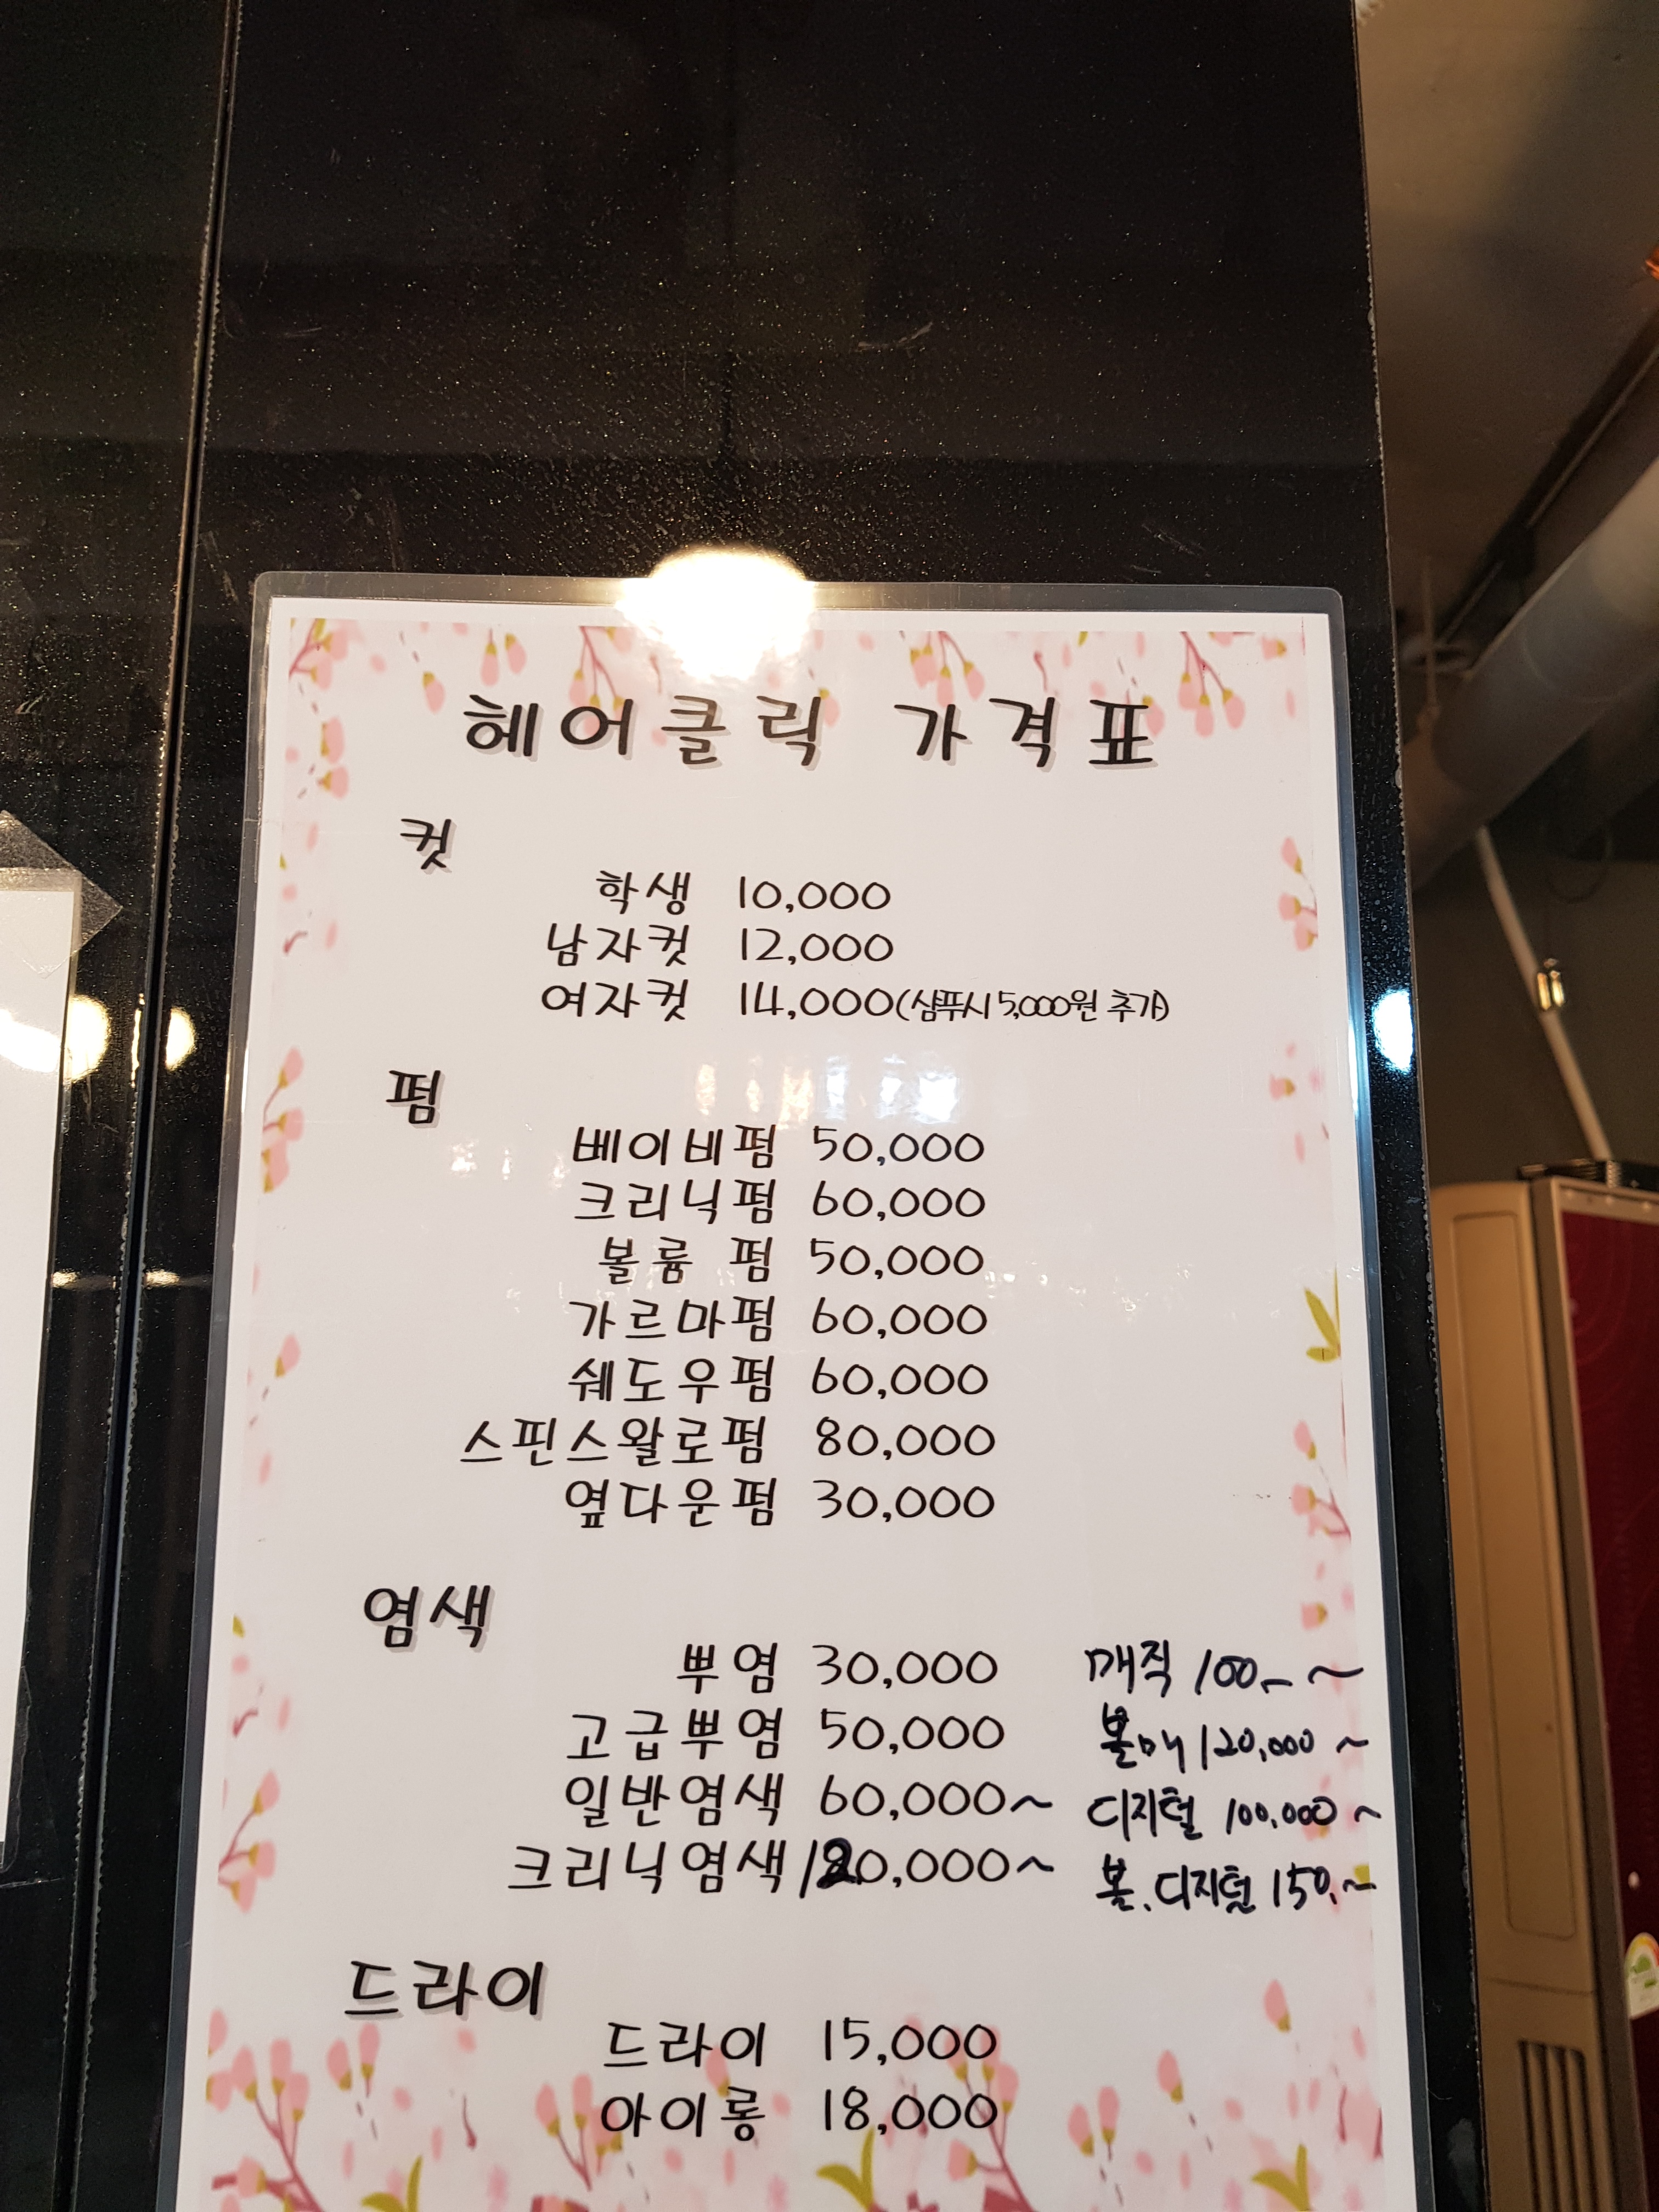 헤어클릭 가격표
컷
학생 10,000
남자컷 12,000
여자컷 14,000(샴푸시 5,000원 추가)
펌
베이비펌 50,000
크리닉펌 60,000
볼륨 펌 50,000
가르마펌 60,000
쉐도우펌 60,000
스핀스왈로펌 80,000
옆다운펌 30,000
염색
뿌염 30,000 매직 100,- ~
고급뿌염 50,000 볼매 120,000 ~
일반염색 60,000~ 디지털 100,000 ~
크리닉염색 120,000~ 볼.디지털 150,~
드라이
드라이 15,000
아이롱 18,000